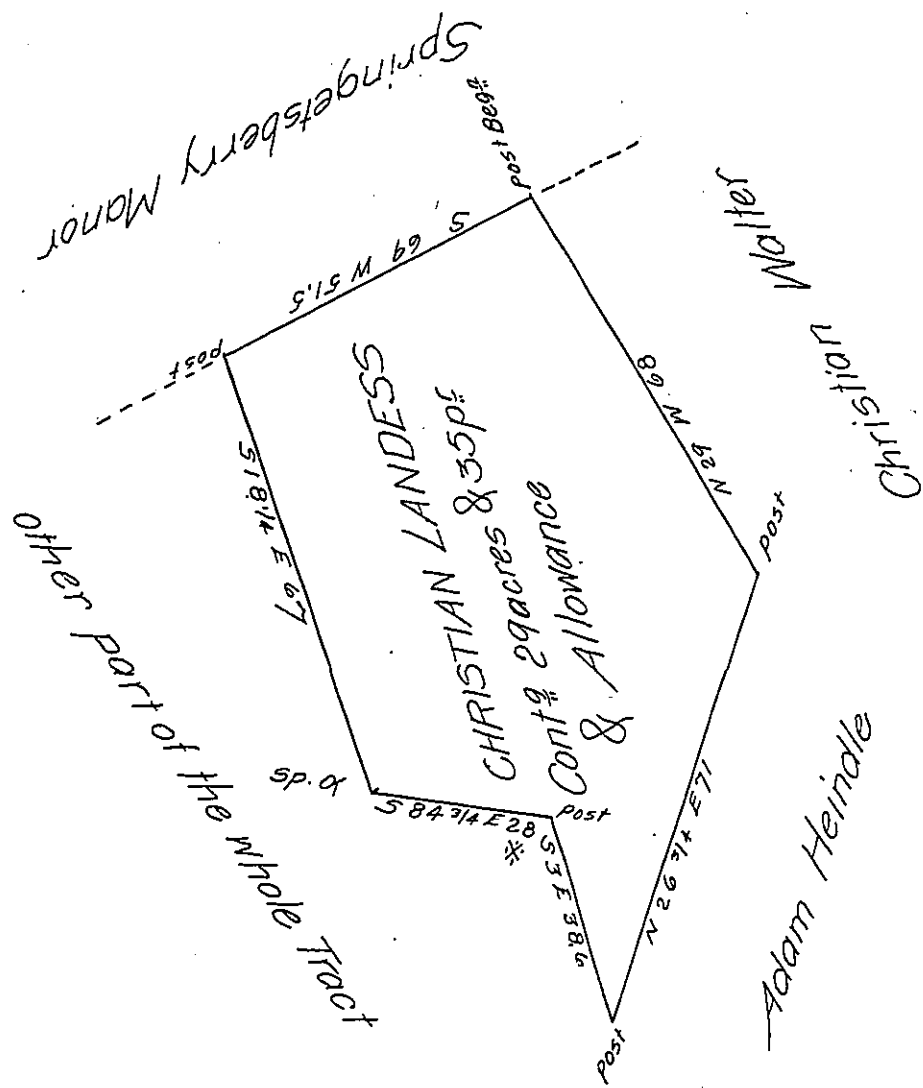 Springetsberry Manor
post Beg.g
S 69 W 51.5
post
S 18 1/4 E 67
other part of the whole Tract
sp. o
S 84 3/4 E 28
※
post
S 3 E 38.6
post
N 26 3/4 E 71
Adam Heindle
post
N 29 W 68
Christian Walter
CHRISTIAN LANDESS
Contg 29 acres & 35 prs
& Allowance